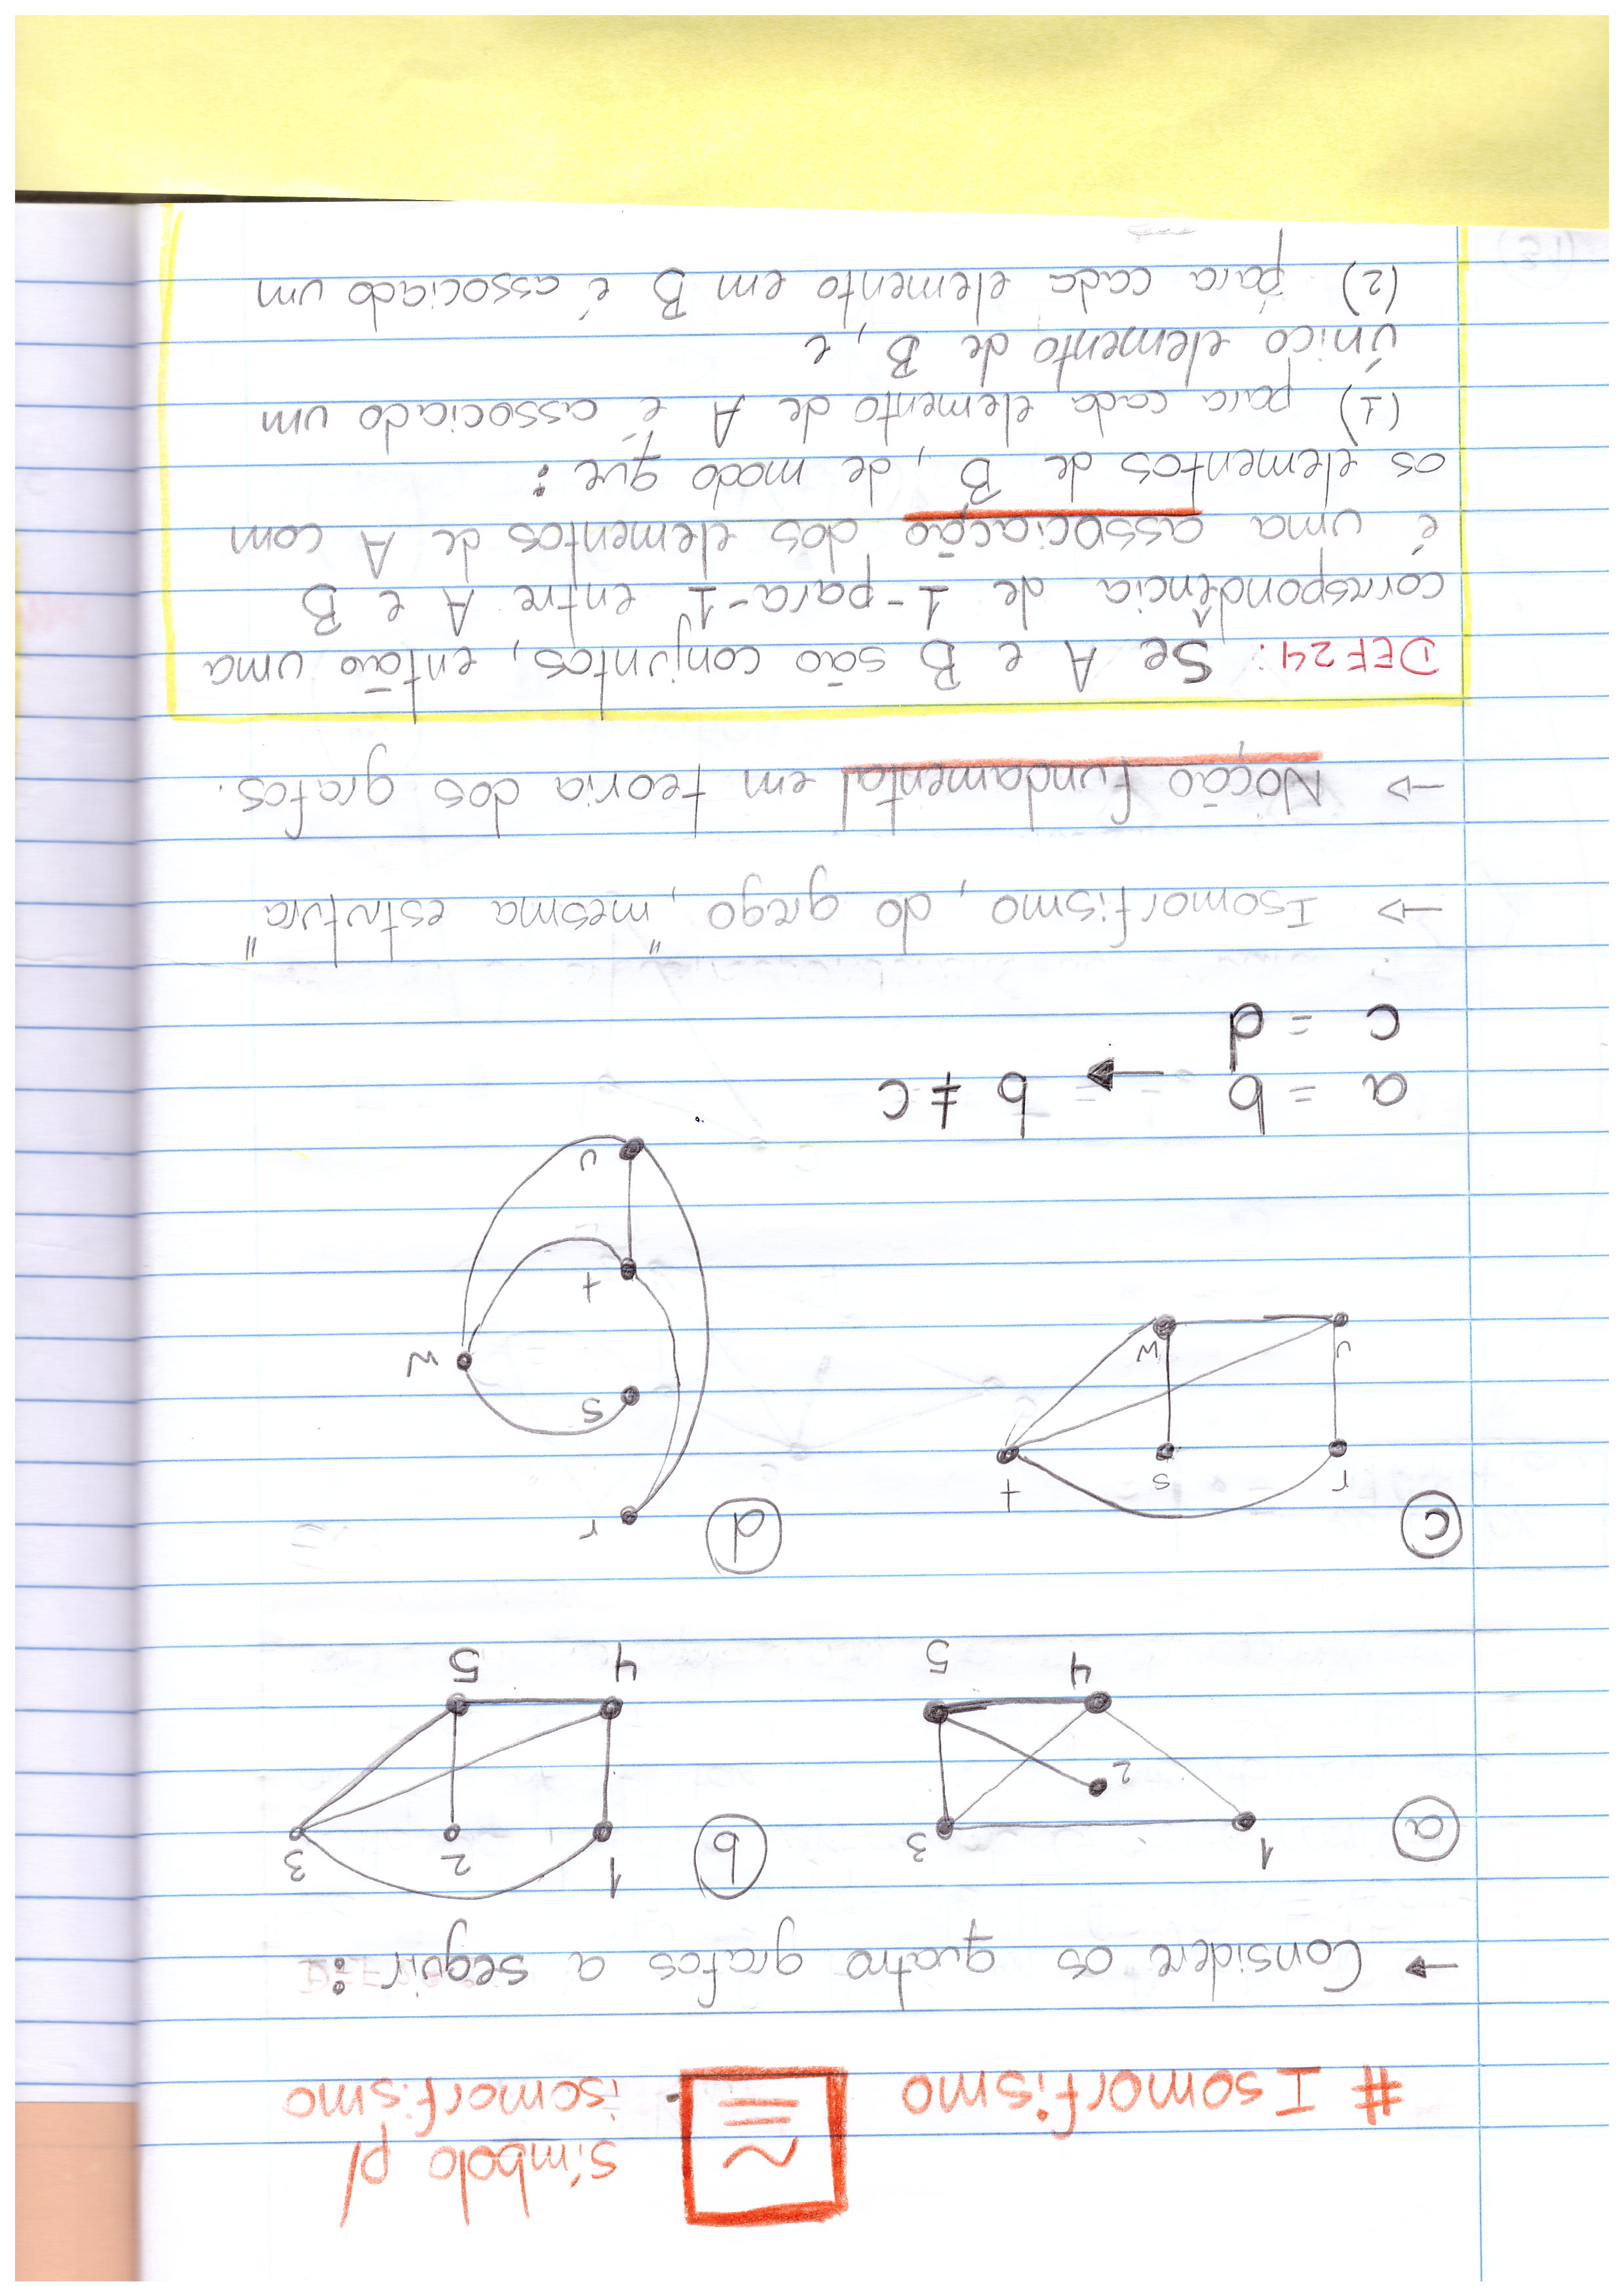 símbolo p/
# Isomorfismo ≅ isomorfismo
→ Considere os quatro grafos a seguir:
a 1 3 b 1 2 3
2
4 5 4 5
c d r
r s t
s
u w w
t
u
a = b → b ≠ c
c = d
→ Isomorfismo, do grego, "mesma estrutura"
→ Noção fundamental em teoria dos grafos.
DEF24: Se A e B são conjuntos, então uma
correspondência de 1-para-1 entre A e B
é uma associação dos elementos de A com
os elementos de B, de modo que:
(1) para cada elemento de A é associado um
único elemento de B, e
(2) para cada elemento em B é associado um